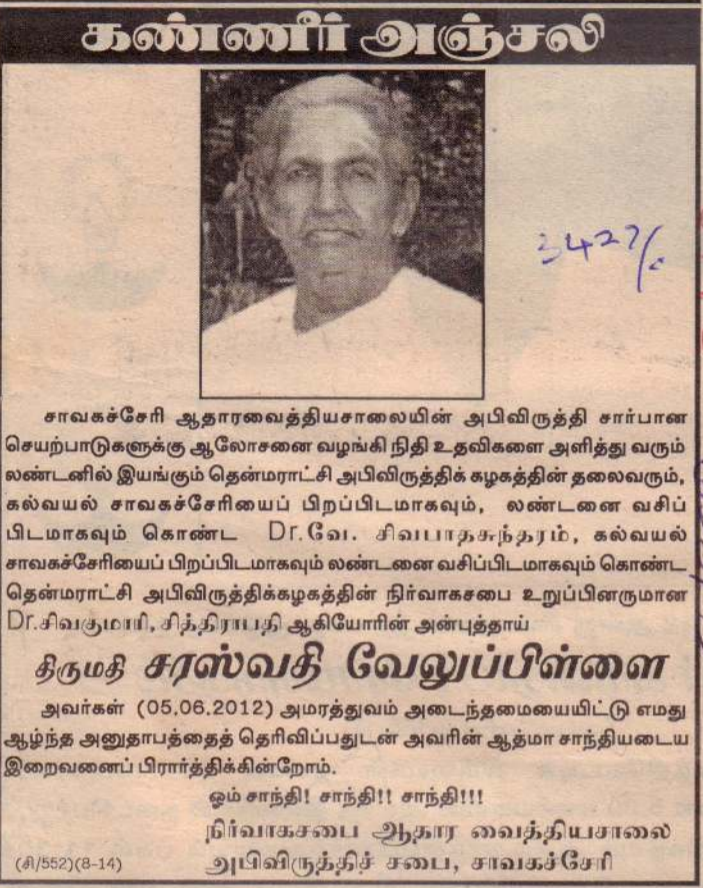 கண்ணீர் அஞ்சலி
3427/-
சாவகச்சேரி ஆதாரவைத்தியசாலையின் அபிவிருத்தி சார்பான
செயற்பாடுகளுக்கு ஆலோசனை வழங்கி நிதி உதவிகளை அளித்து வரும்
லண்டனில் இயங்கும் தென்மராட்சி அபிவிருத்திக் கழகத்தின் தலைவரும்,
கல்வயல் சாவகச்சேரியைப் பிறப்பிடமாகவும், லண்டனை வசிப்
பிடமாகவும் கொண்ட Dr.வே. சிவபாதசுந்தரம், கல்வயல்
சாவகச்சேரியைப் பிறப்பிடமாகவும் லண்டனை வசிப்பிடமாகவும் கொண்ட
தென்மராட்சி அபிவிருத்திக்கழகத்தின் நிர்வாகசபை உறுப்பினருமான
Dr.சிவகுமாரி, சித்திராபதி ஆகியோரின் அன்புத்தாய்
திருமதி சரஸ்வதி வேலுப்பிள்ளை
அவர்கள் (05.06.2012) அமரத்துவம் அடைந்தமையையிட்டு எமது
ஆழ்ந்த அனுதாபத்தைத் தெரிவிப்பதுடன் அவரின் ஆத்மா சாந்தியடைய
இறைவனைப் பிரார்த்திக்கின்றோம்.
ஓம் சாந்தி! சாந்தி!! சாந்தி!!!
நிர்வாகசபை ஆதார வைத்தியசாலை
அபிவிருத்திச் சபை, சாவகச்சேரி
(சி/552)(8-14)